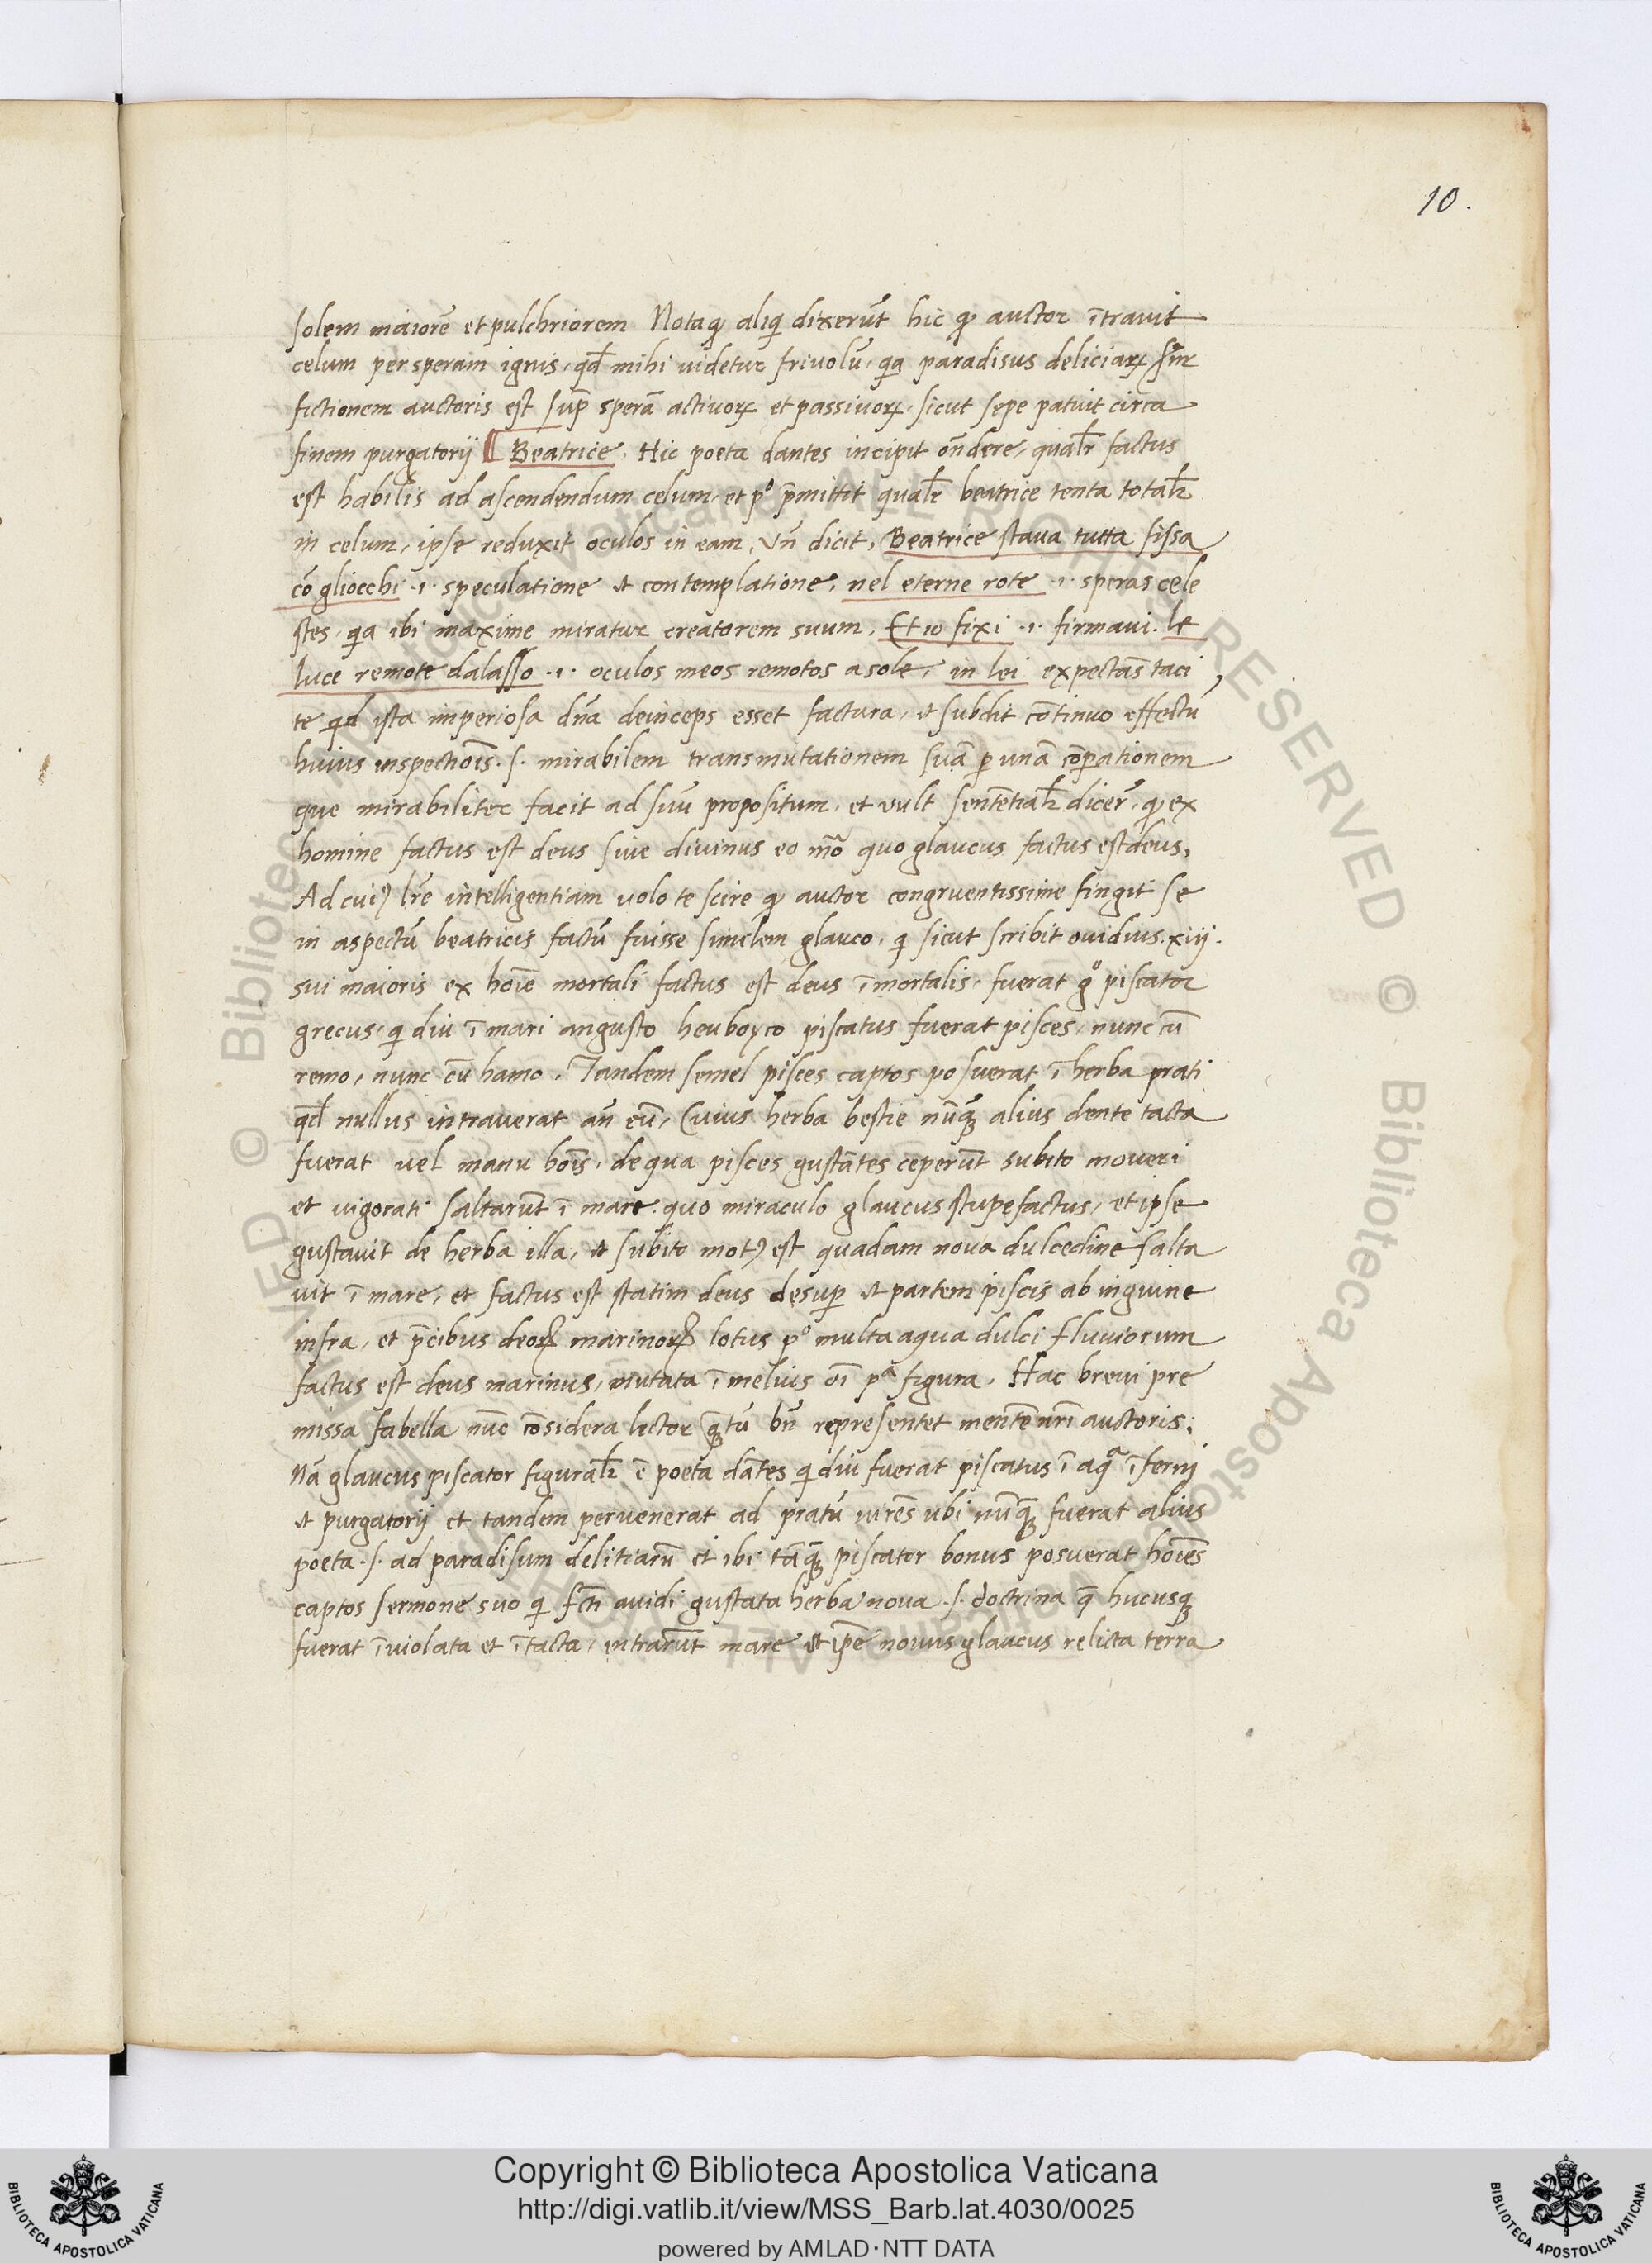 10.
solem maiorē et pulchriorem Nota qꝫ aliqi dixerūt hic qꝫ auctor ītrauit
celum per speram ignis, qđ mihi uidetur friuolū, qa paradisus deliciaꝝ scđm
fictionem auctoris est sup̄ sperā actiuoꝝ et passiuoꝝ, sicut sępe patuit circa
finem purgatorij ¶ Beatrice. Hic poeta dantes incipit oñdere, qualr̄ factus
est habilis ad ascendendum celum, et p° p̄mittit qualr̄ beatrice tenta totalr̄
in celum, ipse reduxit oculos in eam, vñ dicit, Beatrice staua tutta fissa
cō gliocchi .i. speculatione et contemplatione, nel eterne rote .i. speras cele
stes, qa ibi maxime miratur creatorem suum. Et io fixi .i. firmaui. le
luce remote dalasso .i. oculos meos remotos a sole, in lei expectās taci
te qd ista imperiosa dña deinceps esset factura, et subdit cōtinuo effectū
huius inspectiōīs .s. mirabilem transmutationem suā ꝑ unā cōꝑationem
que mirabiliter facit ad suū propositum, et vult sentētialr̄ dicer̄, qꝫ ex
homine factus est deus siue diuinus eo mō quo glaucus factus est deus,
Ad cuiꝰ lr̄e intelligentiam uolo te scire qꝫ auctor congruentissime fingit se
in aspectū beatricis factū fuisse simelem glauco, qi sicut scribit ouidius .xiij.
sui maioris ex hoīe mortali factus est deus īmortalis, fuerat g° piscator
grecus, qi diu ī mari angusto heuboyco piscatus fuerat pisces, nunc cū
remo, nunc cū hamo. Tandem semel pisces captos posuerat ī herba prati
qđ nullus intrauerat añ eū, Cuius herba bestie nūqꝫ alius dente tacta
fuerat uel manu hoīs, de qua pisces gustātes ceperūt subito moueri
et uigorati saltarūt ī mare quo miraculo glaucus stupefactus, et ipse
gustauit de herba illa, et subito motꝰ est quadam noua dulcedine salta
uit ī mare, et factus est statim deus desuꝑ et partem piscis ab inguine
infra, et p̄cibus deoꝝ marinoꝝ lotus p° multa aqua dulci fluuiorum
factus est deus marinus, mutata ī melius oī pᵃ figura. Hac breui pre
missa fabella nūc cōsidera lector qᵃtū bñ representet mentē nr̄i auctoris:
Nā glaucus piscator figuralr̄ ē poeta dātes qi diu fuerat piscatus ī aqᵃ īferni
et purgatorij et tandem peruenerat ad pratū uirēs ubi nūqꝫ fuerat alius
poeta .s. ad paradisum delitiarū et ibi tāqꝫ piscator bonus posuerat hoīes
captos sermone suo qi fcti auidi gustata herba noua .s. doctrina q̄ hucusqꝫ
fuerat īuiolata et ītacta, intrarūt mare et ip̄e nouus glaucus relicta terra
Copyright © Biblioteca Apostolica Vaticana
http://digi.vatlib.it/view/MSS_Barb.lat.4030/0025
powered by AMLAD·NTT DATA
BIBLIOTECA APOSTOLICA VATICANA
BIBLIOTECA APOSTOLICA VATICANA